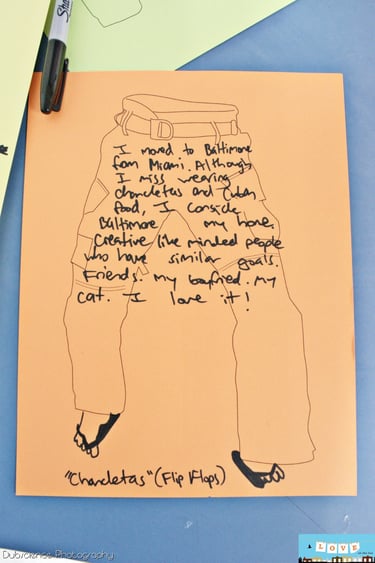 Sha
I moved to Baltimore
from Miami. Although
I miss wearing
chancletas and Cuban
food, I conside
Baltimore my home.
Creative like minded people
who have similar goals.
Friends. my boyfried. My
cat. I love it!
"Chancletas" (Flip Flops)
Photography
LOVE